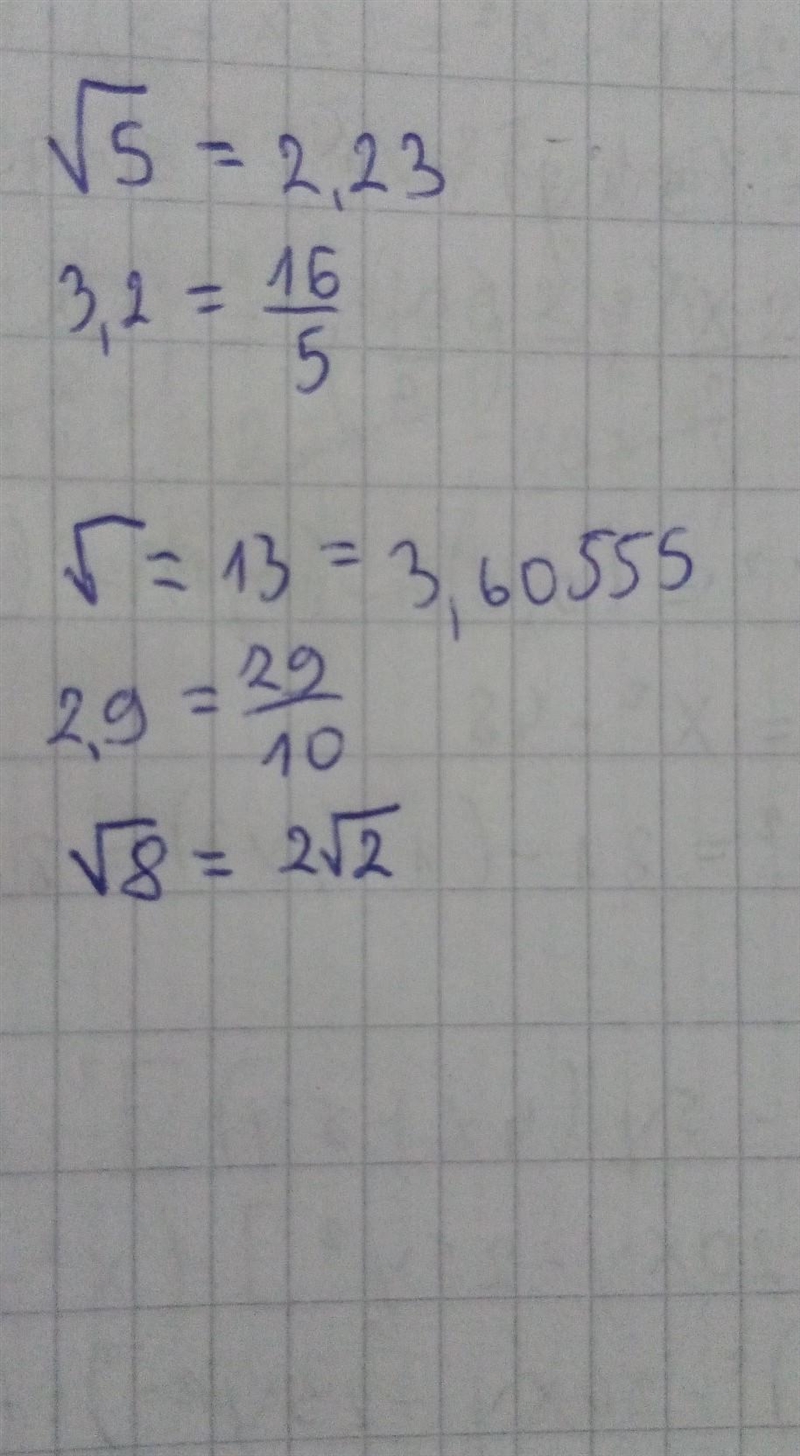 √5 = 2,23
3,2 = 16/5
√ = 13 = 3,60555
2,9 = 29/10
√8 = 2√2